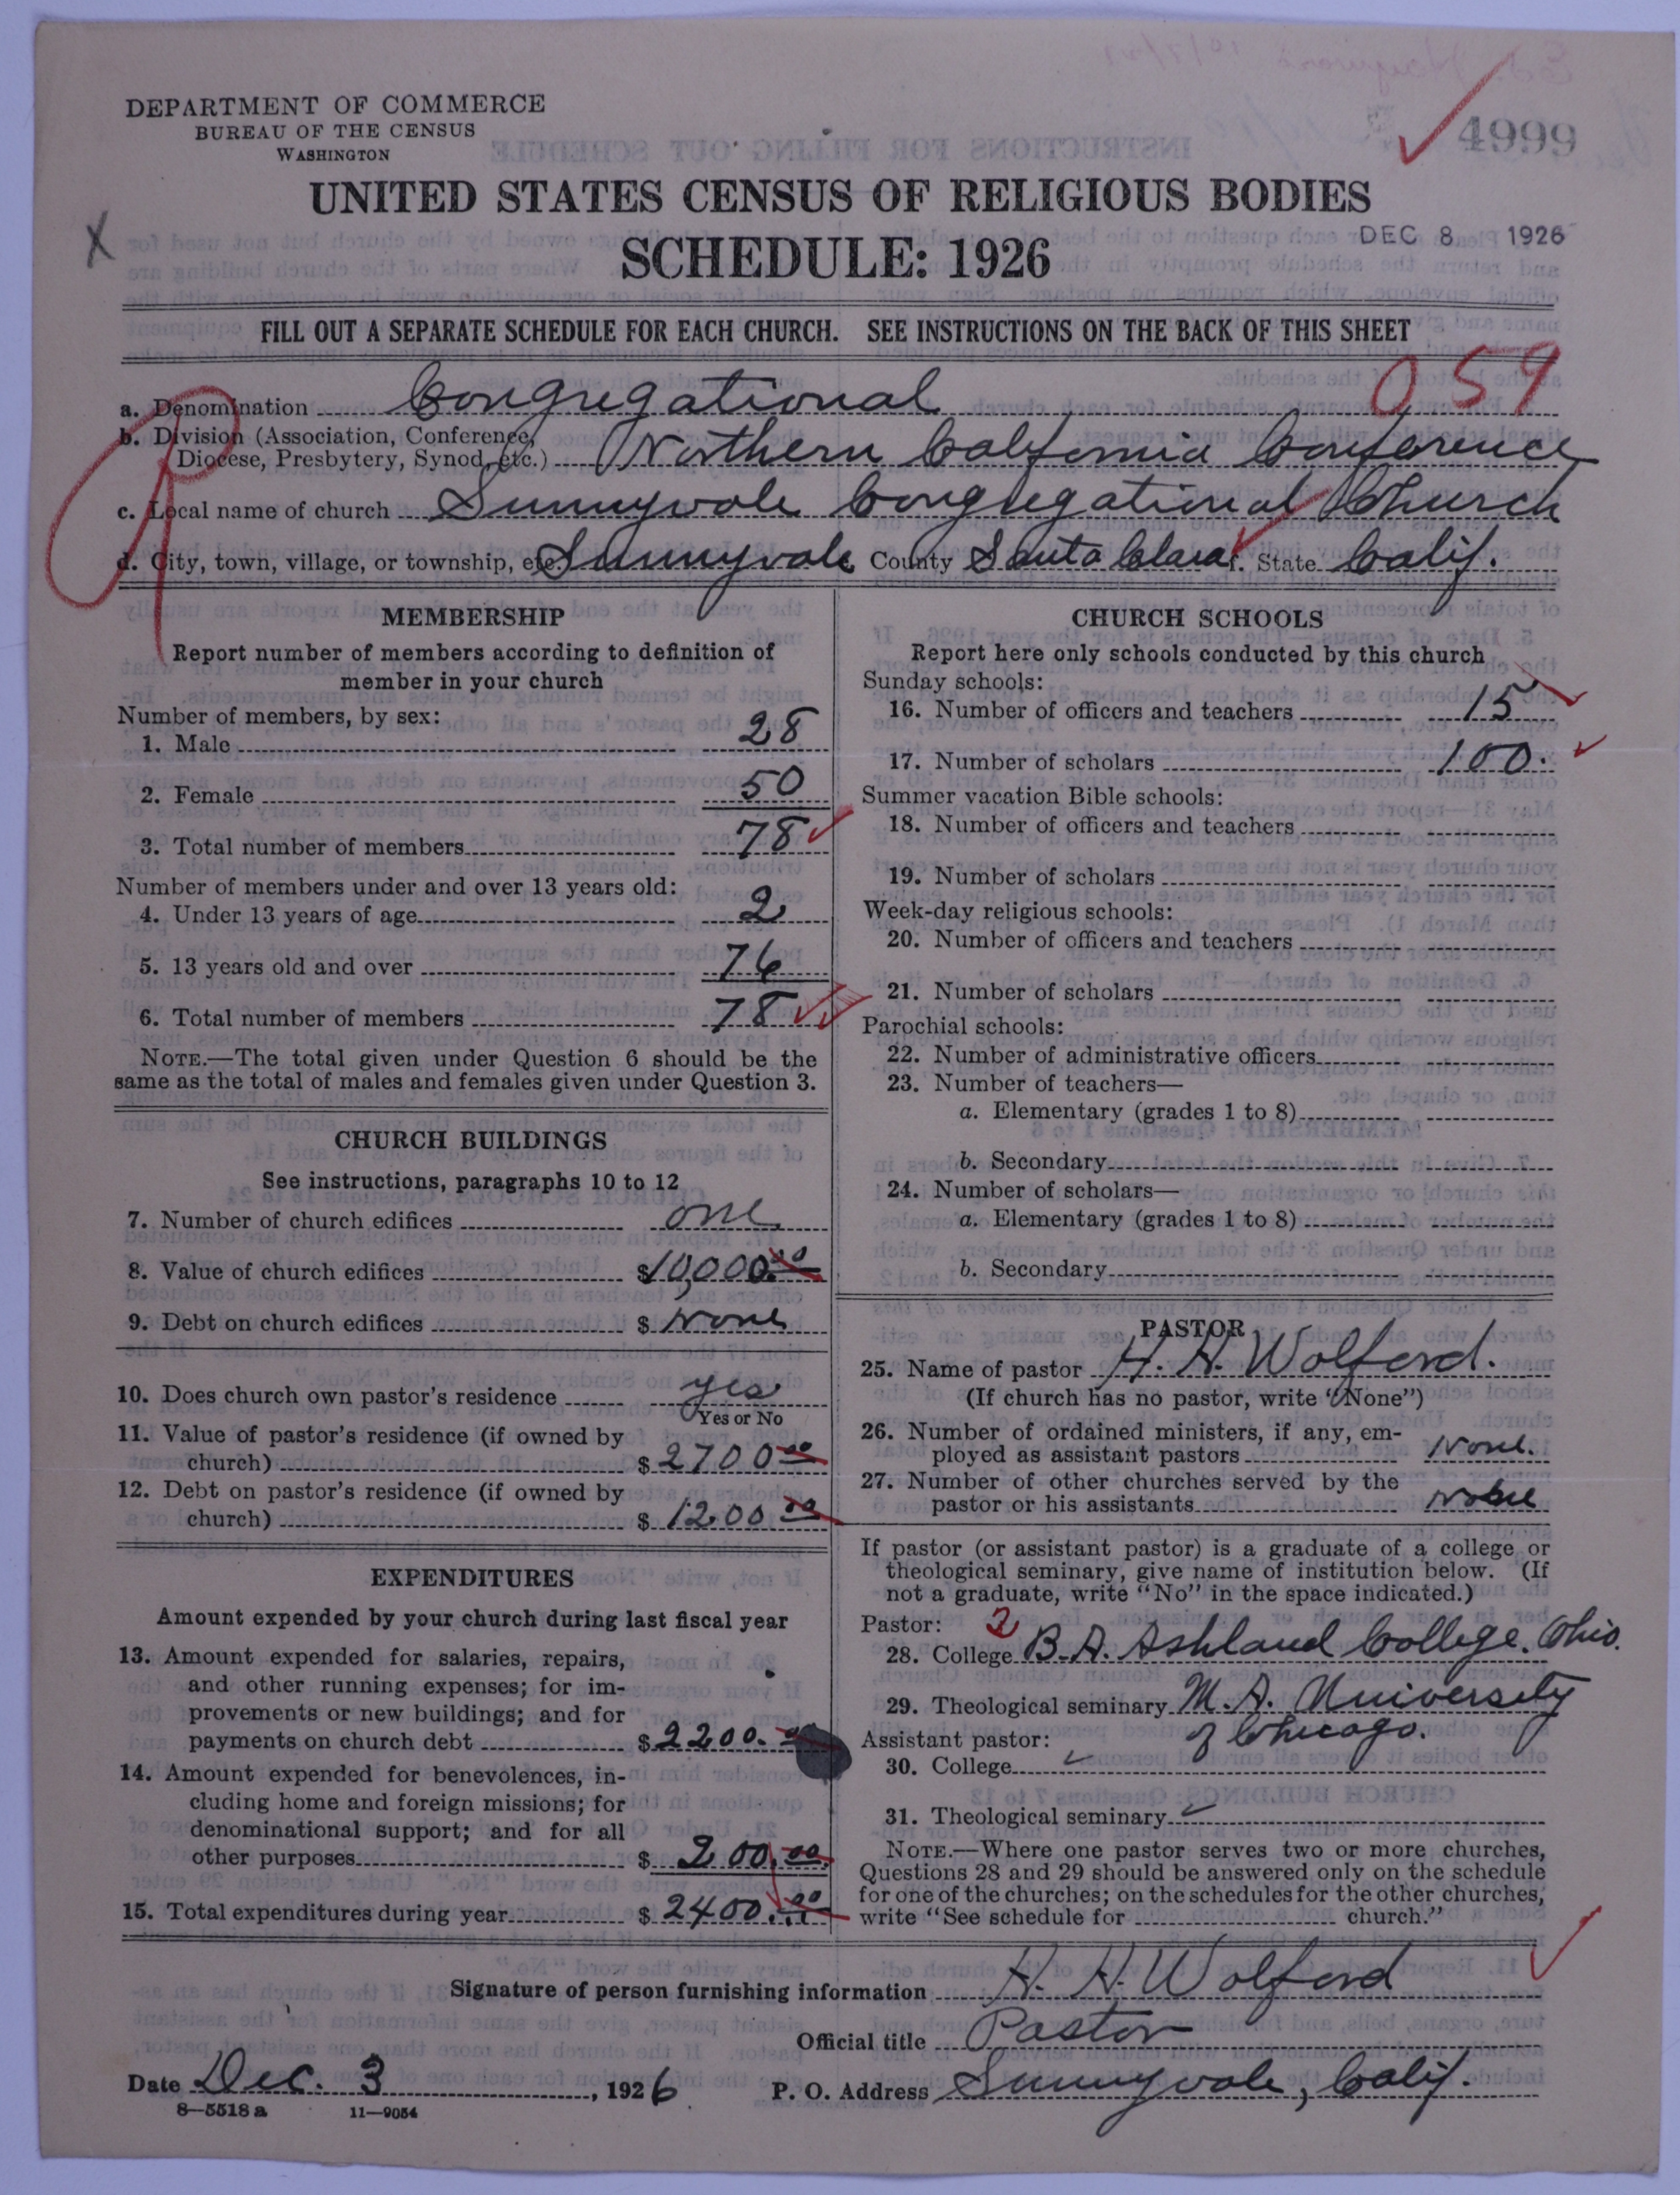 DEPARTMENT OF COMMERCE
BUREAU OF THE CENSUS
WASHINGTON
4999
UNITED STATES CENSUS OF RELIGIOUS BODIES
SCHEDULE: 1926
DEC 8 1926
X
FILL OUT A SEPARATE SCHEDULE FOR EACH CHURCH. SEE INSTRUCTIONS ON THE BACK OF THIS SHEET
059
a. Denomination Congregational
b. Division (Association, Conference,
Diocese, Presbytery, Synod, etc.) Northern California Conference
c. Local name of church Sunnyvale Congregational Church
d. City, town, village, or township, etc. Sunnyvale County Santa Clara State Calif.
MEMBERSHIP
Report number of members according to definition of
member in your church
Number of members, by sex:
1. Male 28
2. Female 50
3. Total number of members 78
Number of members under and over 13 years old:
4. Under 13 years of age 2
5. 13 years old and over 76
6. Total number of members 78
NOTE.—The total given under Question 6 should be the
same as the total of males and females given under Question 3.
CHURCH BUILDINGS
See instructions, paragraphs 10 to 12
7. Number of church edifices one
8. Value of church edifices $10,000.00
9. Debt on church edifices $ None
10. Does church own pastor's residence yes
Yes or No
11. Value of pastor's residence (if owned by
church) $ 2700 00
12. Debt on pastor's residence (if owned by
church) $ 1200 00
EXPENDITURES
Amount expended by your church during last fiscal year
13. Amount expended for salaries, repairs,
and other running expenses; for im-
provements or new buildings; and for
payments on church debt $ 2200. 00
14. Amount expended for benevolences, in-
cluding home and foreign missions; for
denominational support; and for all
other purposes $ 200.00
15. Total expenditures during year $ 2400.00
CHURCH SCHOOLS
Report here only schools conducted by this church
Sunday schools:
16. Number of officers and teachers 15
17. Number of scholars 100.
Summer vacation Bible schools:
18. Number of officers and teachers
19. Number of scholars
Week-day religious schools:
20. Number of officers and teachers
21. Number of scholars
Parochial schools:
22. Number of administrative officers
23. Number of teachers—
a. Elementary (grades 1 to 8)
b. Secondary
24. Number of scholars—
a. Elementary (grades 1 to 8)
b. Secondary
PASTOR
25. Name of pastor H. H. Wolford.
(If church has no pastor, write "None")
26. Number of ordained ministers, if any, em-
ployed as assistant pastors None.
27. Number of other churches served by the
pastor or his assistants None
If pastor (or assistant pastor) is a graduate of a college or
theological seminary, give name of institution below. (If
not a graduate, write "No" in the space indicated.)
Pastor: 2
28. College B.A. Ashland College. Ohio.
29. Theological seminary M.A. University
of Chicago.
Assistant pastor:
30. College
31. Theological seminary
NOTE.—Where one pastor serves two or more churches,
Questions 28 and 29 should be answered only on the schedule
for one of the churches; on the schedules for the other churches,
write "See schedule for church."
Signature of person furnishing information H. H. Wolford
Official title Pastor
Date Dec. 3, 1926 P. O. Address Sunnyvale, Calif.
8—5518 a 11—9054